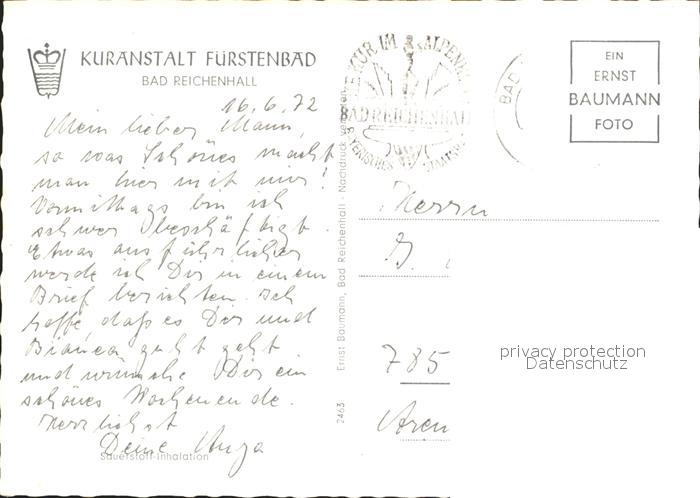 KURANSTALT FÜRSTENBAD
BAD REICHENHALL
16.6.72
Mein lieber Mann,
so was Schönes macht
man hier mit mir!
Vormittags bin ich
schwer beschäftigt.
Etwas ausführlicher
werde ich Dir in einem
Brief berichten. Ich
hoffe, daß es Dir und
Bianca gut geht
und wünsche Dir ein
schönes Wochenende.
Herzlichst
Deine
Sauerstoff-Inhalation
2463 Ernst Baumann, Bad Reichenhall - Nachdruck verboten
KUR IM ALPEN
BAD REICHENHALL
BAYERISCHES STAATSBAD
BAD
EIN
ERNST
BAUMANN
FOTO
Herrn
G.
785
Aren
privacy protection
Datenschutz